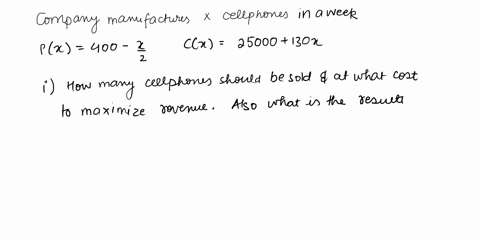 Company manufactures x cellphones in a week
P(x) = 400 - x/2 C(x) = 25000 + 130x
i) How many cellphones should be sold & at what cost
to maximize revenue. Also what is the results